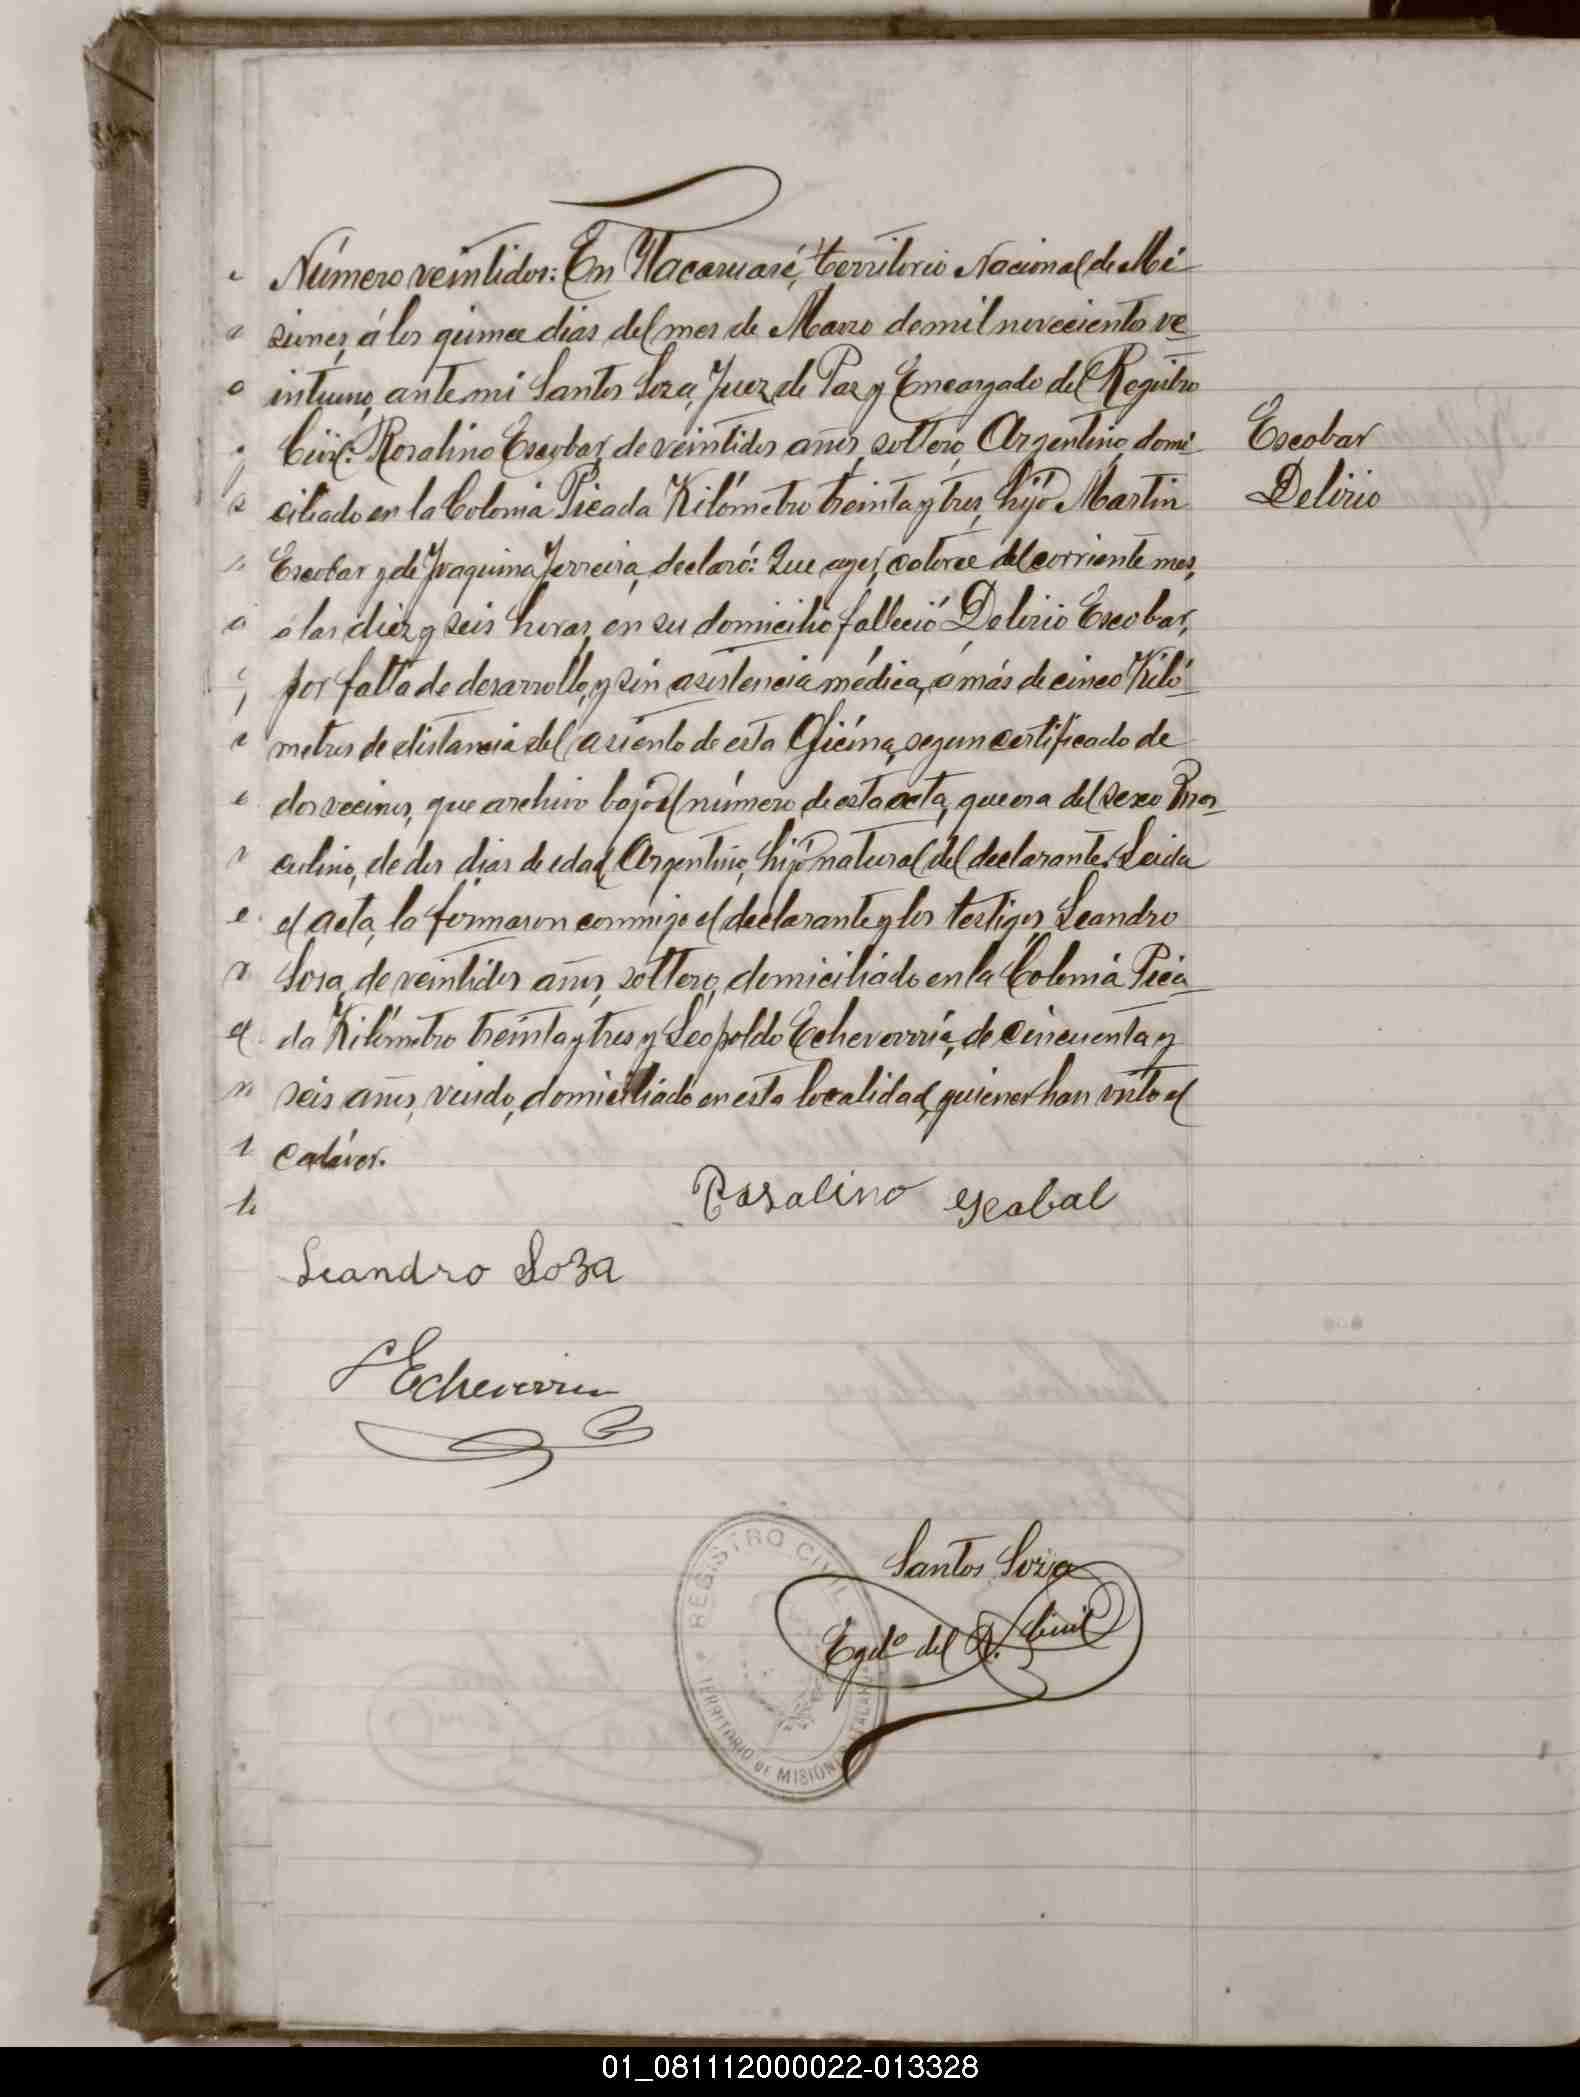 Número veintidos: En Ytacaruaré, territorio Nacional de Mi-
siones, á los quince dias del mes de Marzo de mil novecientos ve-
intiuno, ante mi Santos Soza, Juez de Paz y Encargado del Registro
Civil: Rosalino Escobar, de veintidos años, soltero, Argentino, domi-
ciliado en la Colonia Picada Kilómetro treinta y tres, hijo Martin
Escobar y de Joaquina Ferreira, declaró: Que ayer, catorce del corriente mes,
á las diez y seis horas, en su domicilio falleció Delirio Escobar,
por falta de desarrollo, y sin asistencia médica, á más de cinco Kiló-
metros de distancia del asiento de esta Oficina, segun certificado de
dos vecinos, que archivo bajo el número de esta acta, que era del sexo mas-
culino, de dos dias de edad, Argentino, hijo natural del declarante. Leida
el acta, la firmaron conmigo el declarante y los testigos, Leandro
Sosa, de veintidos años, soltero, domiciliado en la Colonia Pica-
da Kilómetro treinta y tres y Leopoldo Echeverría, de cincuenta y
seis años, viudo, domiciliado en esta localidad, quienes han visto el
cadáver.
Escobar
Delirio
Rosalino escabal
Leandro Soza
L Echeverria
Santos Soza
Egdo del R. Civil
REGISTRO CIVIL
TERRITORIO DE MISIONES
01_081112000022-013328